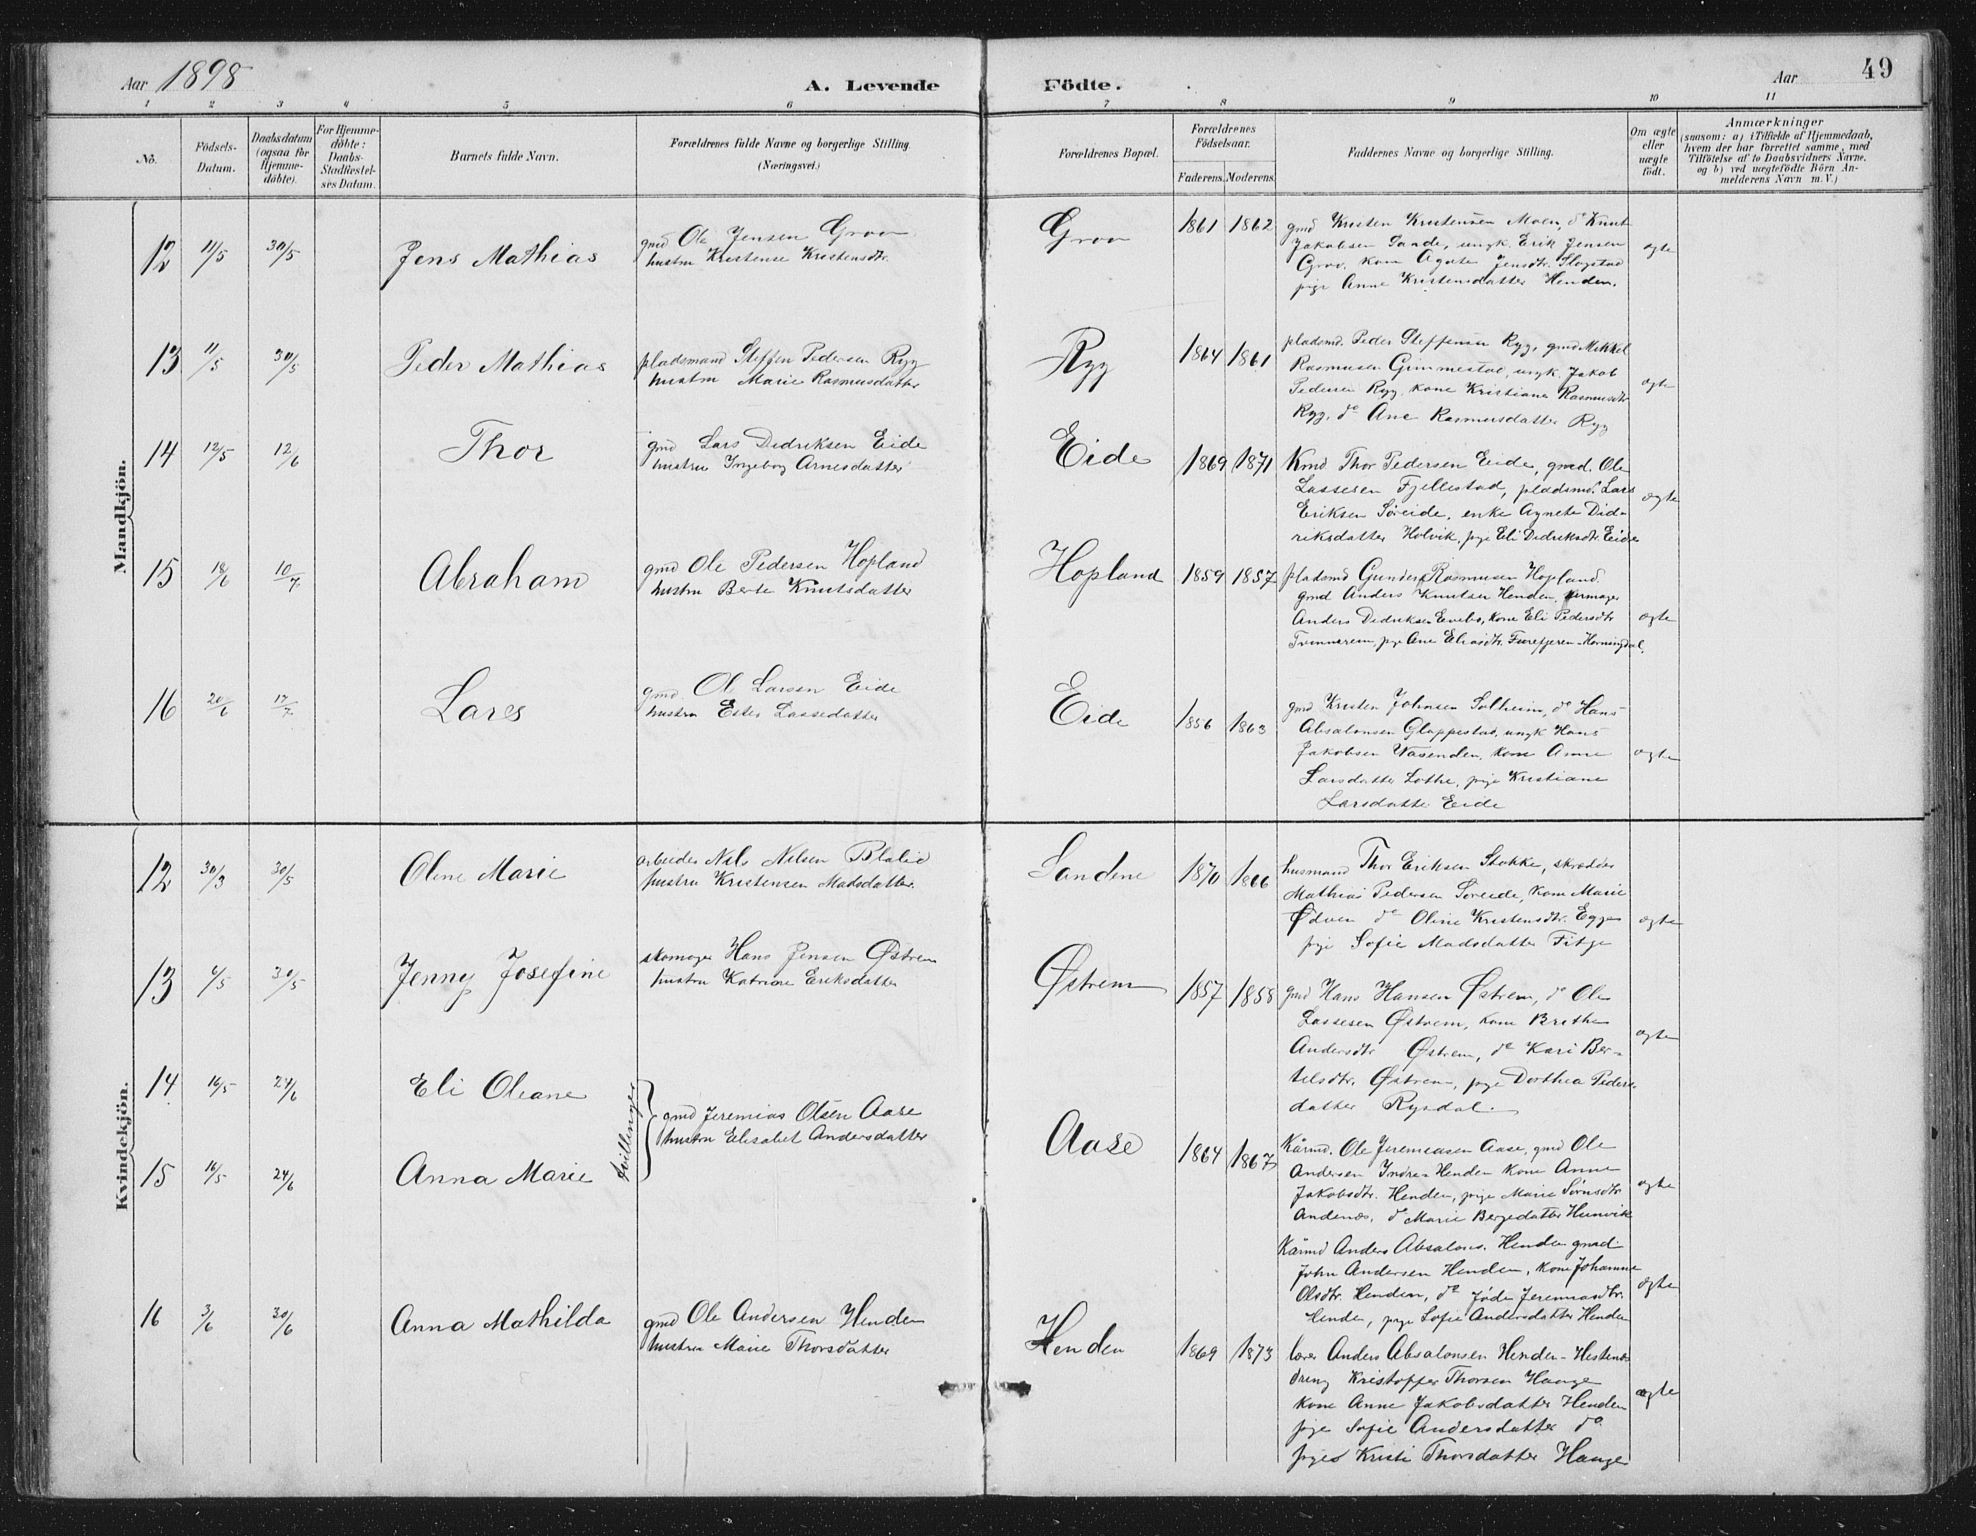 Aar 1898
A. Levende
Födte.
Aar
49
1 2 3 4 5 6 7 8 9 10 11
No.
Födsels-
Datum.
Daabsdatum
(ogsaa for
Hjemme-
döbte).
For Hjemme-
döbte:
Daabs-
Stadfæstel-
ses Datum.
Barnets fulde Navn.
Forældrenes fulde Navne og borgerlige Stilling
(Næringsvei.)
Forældrenes Bopæl.
Forældrenes
Födselsaar.
Faderens. Moderens.
Faddernes Navne og borgerlige Stilling.
Om ægte
eller
uægte
födt.
Anmærkninger
(saasom: a) i Tilfælde af Hjemmedaab,
hvem der har forrettet samme, med
Tilföielse af to Daabsvidners Navne.
og b) ved uægtefödte Börn An-
melderens Navn m. V.)
Mandkjön.
12 11/5 30/5
Jens Mathias
gmd Ole Jensen Groo
hustru Kristense Kristensdtr.
Groo
1861 1862
gmd Kristen Kristensen Moen, do Knut
Jakobsen Saade, ungk. Erik Jensen
Groo, kone Agate Jensdtr.
pige Anne Kristensdatter Henden.
ægte
13 11/5 30/5
Peder Mathias
pladsmand Steffen Pedersen Ryg
hustru Marie Rasmusdatter
Ryg
1864 1861
pladsmd. Peder Steffensen Ryg, gmd Mikkel
Rasmusen Gimmestad, ungk Jakob
Pedersen Ryg, kone Kristiane Rasmusdtr
Ryg, do Ane Rasmusdatter Ryg
ægte
14 12/5 12/6
Thor
gmd Lars Didriksen Eide
hustru Ingeborg Arnesdatter
Eide
1869 1871
Kmd Thor Pedersen Eide, gmd. Ole
Lassesen Fjellestad, pladsmd. Lars
Eriksen Söreide, enke Agnete Did-
riksdatter Holvik, pige Eli Didriksdtr. Eide
ægte
15 18/6 10/7
Abraham
gmd Ole Pedersen Hopland
hustru Berte Knutsdatter
Hopland
1859 1857
pladsmd Gunder Rasmusen Hopland.
gmd Anders Knutsen Henden,
Anders Didriksen Evebö, kone Eli Pedersdtr
pige Ane Eliasdtr. Hornindal.
ægte
16 20/6 17/7
Lars
gmd. Ole Larsen Eide
hustru Ester Lassedatter
Eide
1856 1863
gmd Kristen Johnsen Solheim, do Hans
Absalonsen Gloppestad, ungk Hans
Jakobsen Vasenden, kone Anne
Larsdatter Lothe, pige Kristiane
Larsdatter Eide
ægte
Kvindekjön.
12 30/3 30/5
Oline Marie
arbeider Nils Nilsen
hustru Kristensen Madsdatter.
Sandene
1870 1866
husmand Thor Eriksen Stokke, skrædder
Mathias Pedersen Söreide, kone Marie
do Oline Kristensdtr. Egge
pige Sofie Madsdatter Fitje
ægte
13 4/5 30/5
Jenny Josefine
skomager Hans Jensen Östrem
hustru Katrine Eriksdatter
Østrem
1857 1858
gmd Hans Hansen Østrem, do Ole
Lassesen Østrem, kone Brithe
Andersdtr Østrem, do Kari Ber-
telsdtr. Østrem, pige Dorthea Peders-
datter Rysdal.
ægte
14 16/5 24/6
Eli Oleane
Tvillinger
gmd Jeremias Olsen Aase
hustru Elisabet Andersdatter
15 16/5 24/6
Anna Marie
Aase
1864 1867
Kårmd. Ole Jeremiasen Aase, gmd Ole
Andersen Indre-Henden kone Anne
Jakobsdtr. Henden, pige Marie Sörnsdtr
Andenæs, do Marie Bergedatter
ægte
Kårmd Anders Absalons. Henden gmd
John Andersen Henden, kone Johanne
Olsdtr. Henden, do Jöde Jeremiasdtr.
Henden, pige Sofie Andersdatter Henden
ægte
16 3/6 30/6
Anna Mathilda
gmd Ole Andersen Henden
hustru Marie Thorsdatter
Henden
1869 1873
lærer Anders Absalonsen Henden-Hestenæs
dreng Kristoffer Thorsen Hauge
kone Anne Jakobsdatter Henden
pige Sofie Andersdatter do
pige Kristi Thorsdatter Hauge
ægte